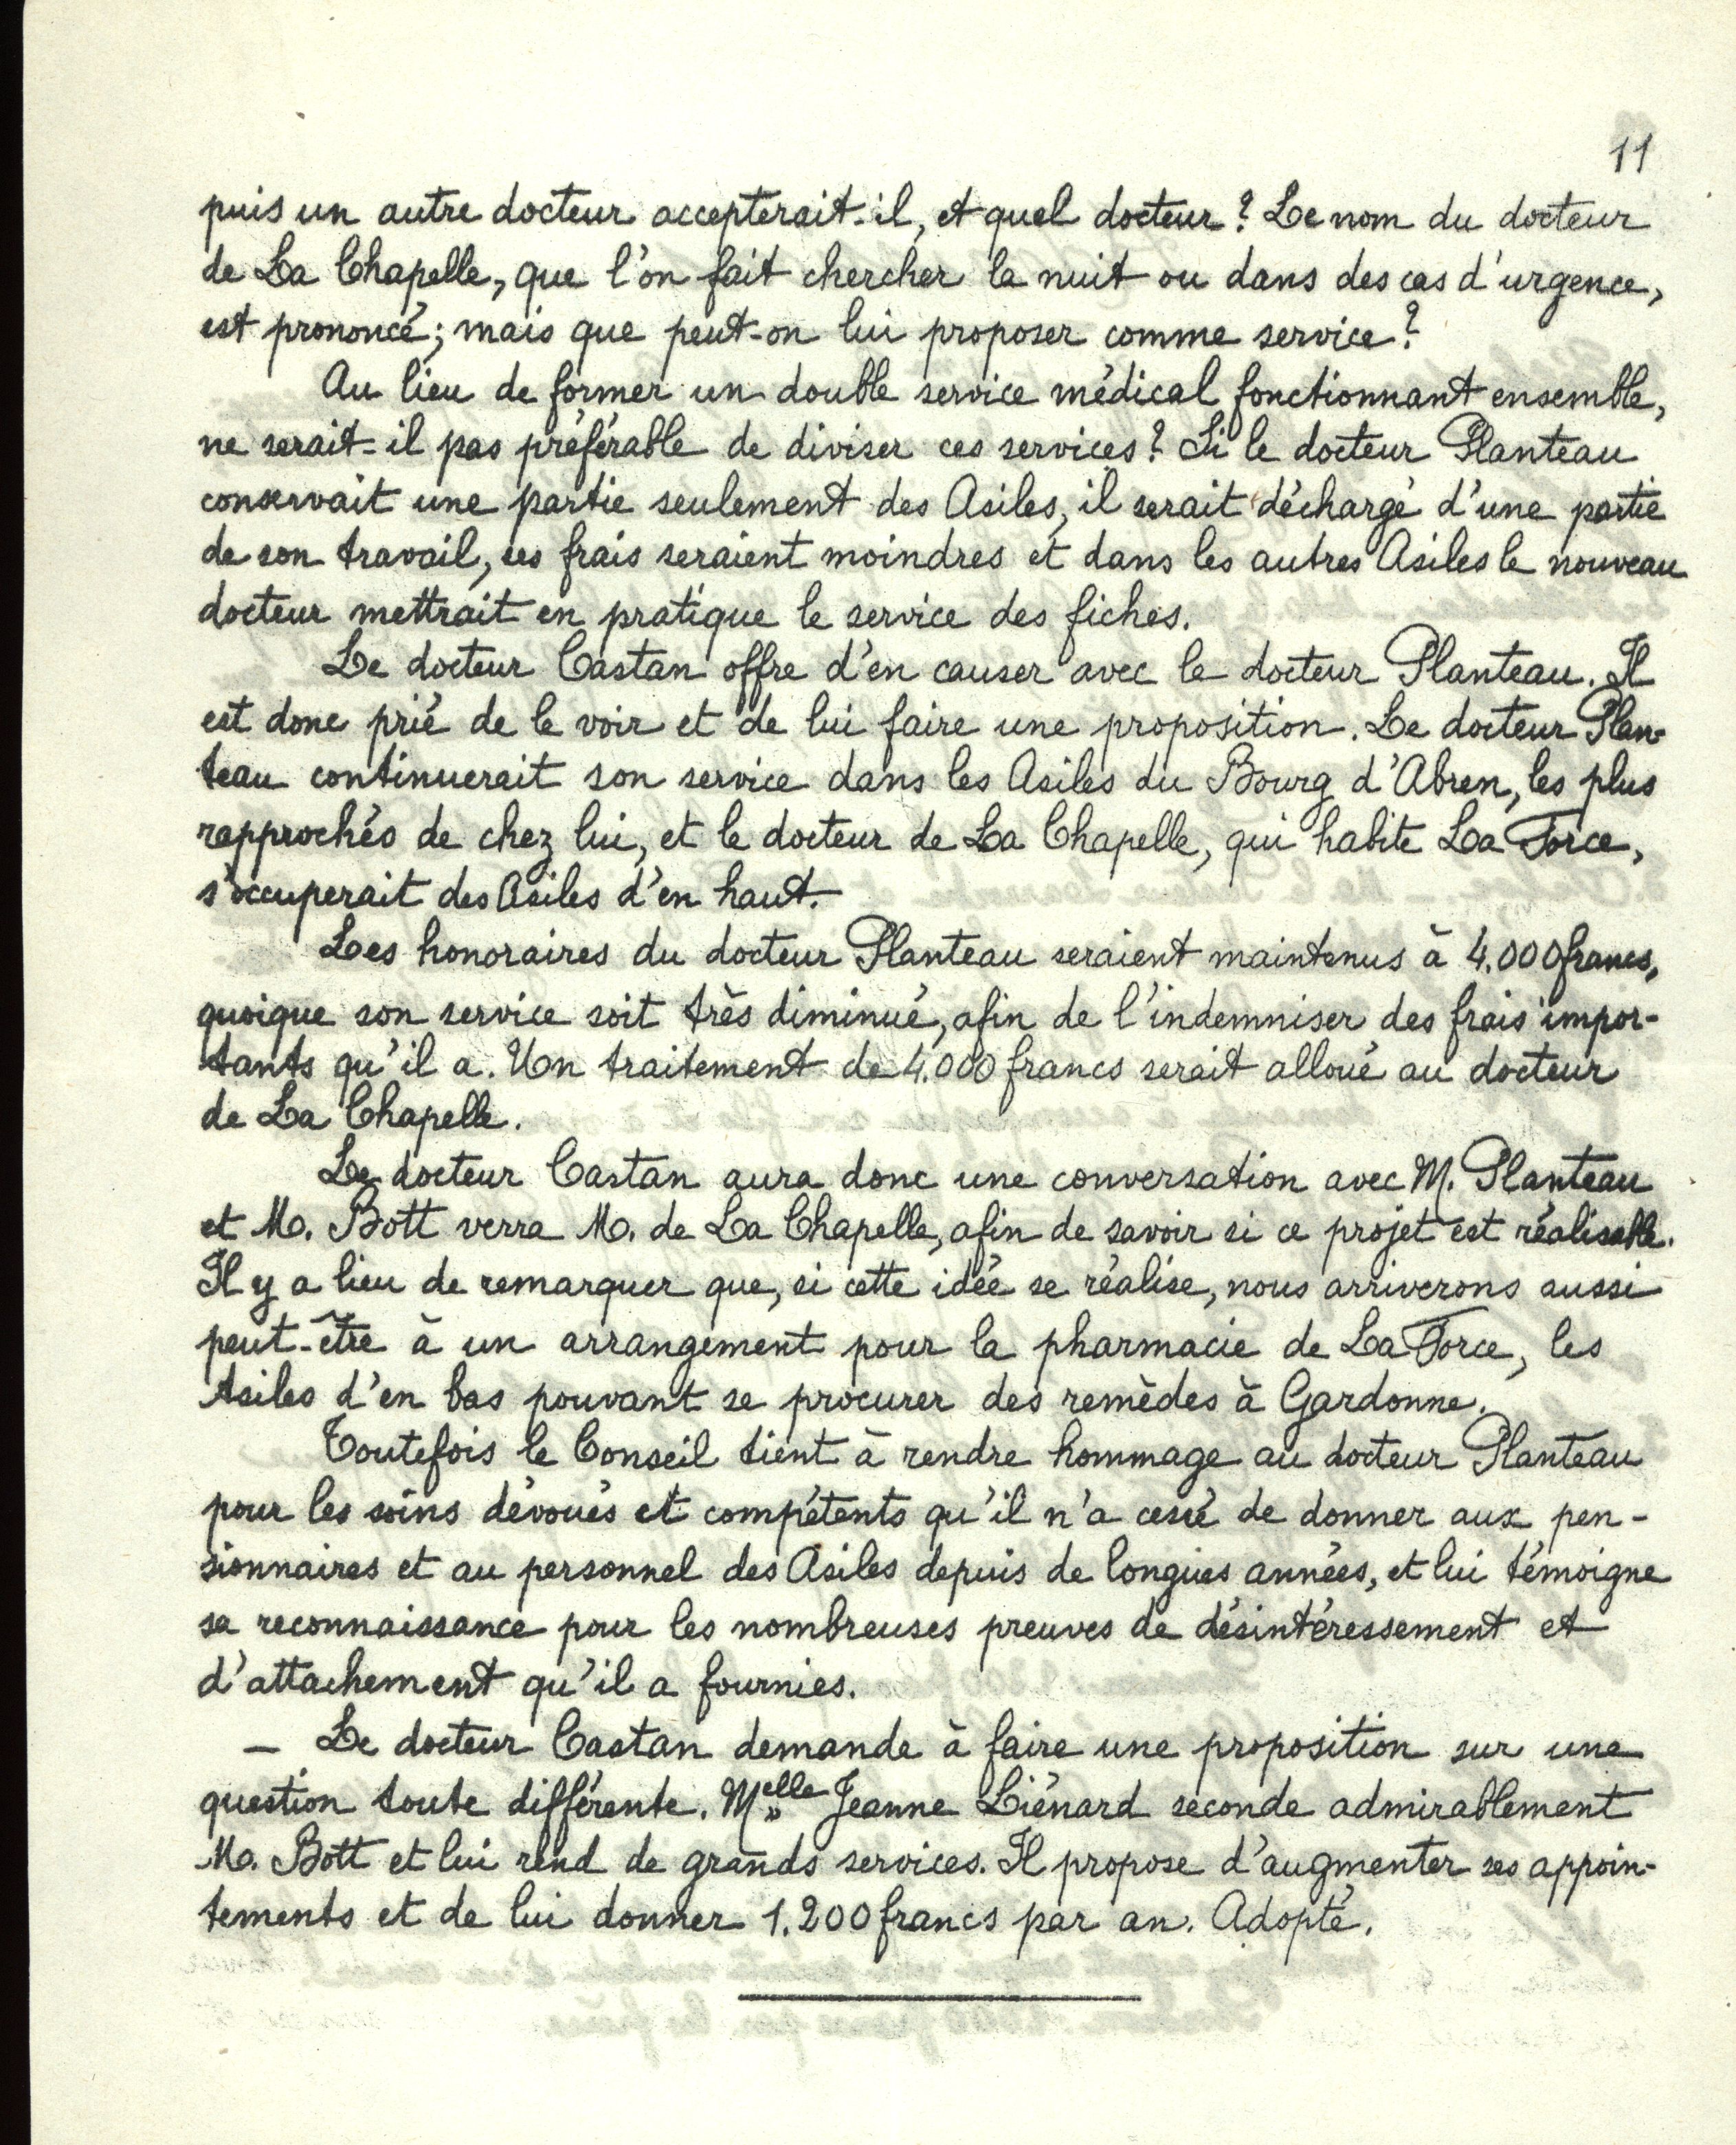 11
puis un autre docteur accepterait-il, et quel docteur? Le nom du docteur
de La Chapelle, que l'on fait chercher la nuit ou dans des cas d'urgence,
est prononcé; mais que peut-on lui proposer comme service?
Au lieu de former un double service médical fonctionnant ensemble,
ne serait-il pas préférable de diviser ces services? Si le docteur Planteau
conservait une partie seulement des Asiles, il serait déchargé d'une partie
de son travail, ses frais seraient moindres et dans les autres Asiles le nouveau
docteur mettrait en pratique le service des fiches.
Le docteur Castan offre d'en causer avec le docteur Planteau. Il
est donc prié de le voir et de lui faire une proposition. Le docteur Plan-
teau continuerait son service dans les Asiles du Bourg d'Abren, les plus
rapprochés de chez lui, et le docteur de La Chapelle, qui habite La Force,
s'occuperait des Asiles d'en haut.
Les honoraires du docteur Planteau seraient maintenus à 4.000 francs,
quoique son service soit très diminué, afin de l'indemniser des frais impor-
tants qu'il a. Un traitement de 4.000 francs serait alloué au docteur
de La Chapelle.
Le docteur Castan aura donc une conversation avec M. Planteau
et M. Bott verra M. de La Chapelle, afin de savoir si ce projet est réalisable.
Il y a lieu de remarquer que, si cette idée se réalise, nous arriverons aussi
peut-être à un arrangement pour la pharmacie de La Force, les
Asiles d'en bas pouvant se procurer des remèdes à Gardonne.
Toutefois le Conseil tient à rendre hommage au docteur Planteau
pour les soins dévoués et compétents qu'il n'a cessé de donner aux pen-
sionnaires et au personnel des Asiles depuis de longues années, et lui témoigne
sa reconnaissance pour les nombreuses preuves de désintéressement et
d'attachement qu'il a fournies.
— Le docteur Castan demande à faire une proposition sur une
question toute différente. Melle Jeanne Liénard seconde admirablement
M. Bott et lui rend de grands services. Il propose d'augmenter ses appoin-
tements et de lui donner 1.200 francs par an. Adopté.